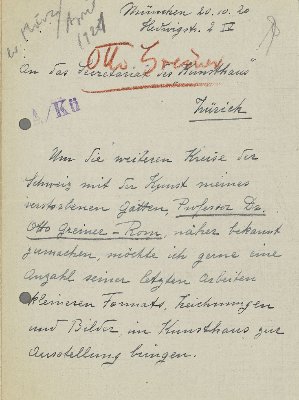 München 20.10.20
Hedwigstr. 2 IV
März / April
1921
An das Secretariat des Kunsthaus
Otto Greiner
Zürich
/Kü
Um die weiteren Kreise der
Schweiz mit der Kunst meines
verstorbenen Gatten, Professor Dr.
Otto Greiner-Rom, näher bekannt
zumachen, möchte ich gerne eine
Anzahl seiner letzten Arbeiten
kleineren Formats, Zeichnungen
und Bilder im Kunsthaus zur
Ausstellung bringen.